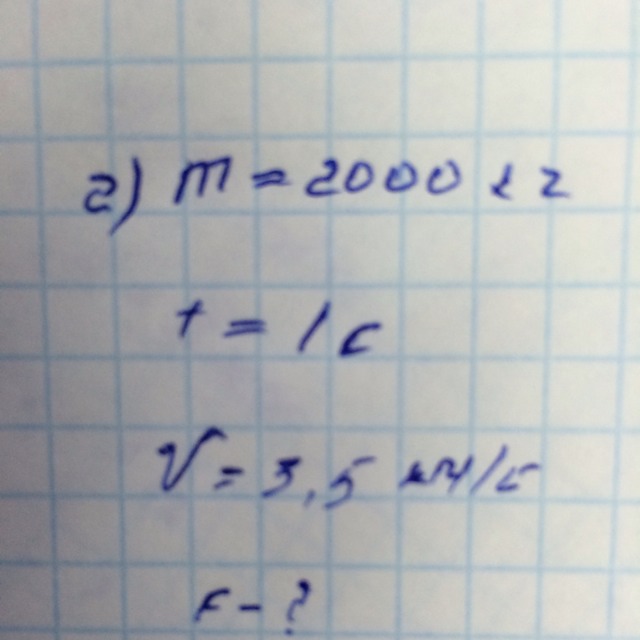 2) m = 2000 кг
t = 1 с
V = 3,5 км/с
F - ?